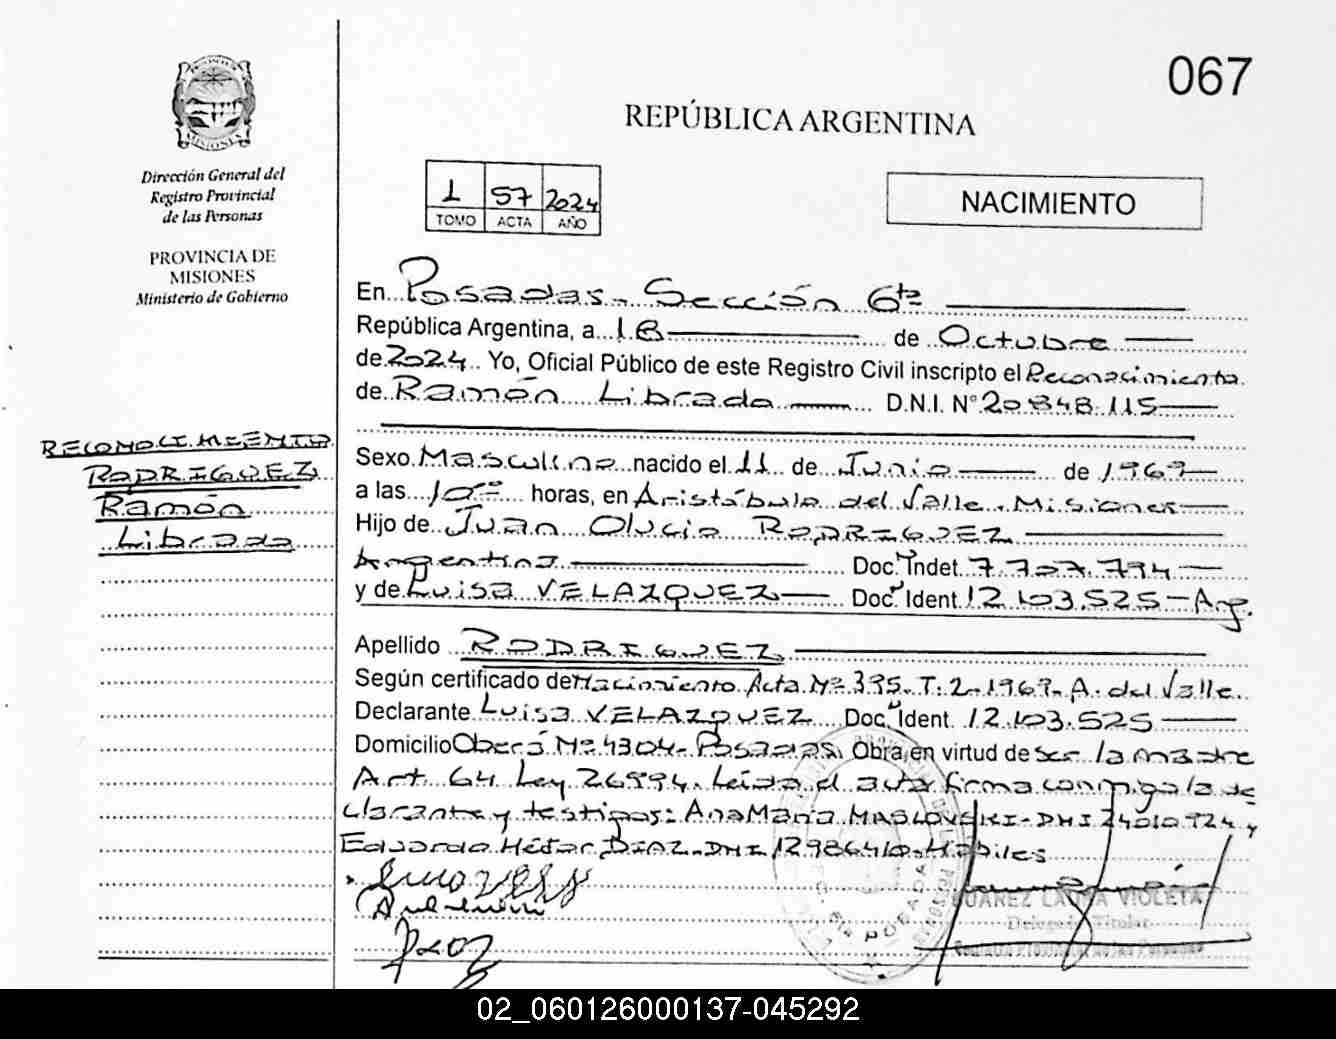 067
REPÚBLICA ARGENTINA
MISIONES
Dirección General del
Registro Provincial
de las Personas
PROVINCIA DE
MISIONES
Ministerio de Gobierno
1 57 2024
TOMO ACTA AÑO
NACIMIENTO
En Posadas - Sección 6ta
República Argentina, a 18 de Octubre
de 2024 Yo, Oficial Público de este Registro Civil inscripto el Reconocimiento
de Ramón Librado D.N.I. N° 20.848.115
RECONOCIMIENTO
RODRIGUEZ
Ramón
Librado
Sexo Masculino nacido el 11 de Junio de 1969
a las 10 horas, en Aristóbulo del Valle. Misiones
Hijo de Juan Olucio RODRIGUEZ
Argentino Doc. Indet. 7.707.794
y de Luisa VELAZQUEZ Doc. Ident. 12.103.525 - Arg.
Apellido RODRIGUEZ
Según certificado de Nacimiento Acta Nº 395. T: 2-1969-A. del Valle.
Declarante Luisa VELAZQUEZ Doc. Ident. 12.103.525
Domicilio Oberá Nº 4304- Posadas. Obra en virtud de ser la madre
Art. 64 Ley 26994. Leida el acta firma conmigo la de
clarante y testigos: Ana María MASLOVSKI-DNI 24010724 y
Eduardo Héctor DIAZ-DNI 12986410-Hábiles
SUAREZ LAURA VIOLETA
Delegada Titular
Registro Provincial de las Personas
POSADAS
02_060126000137-045292